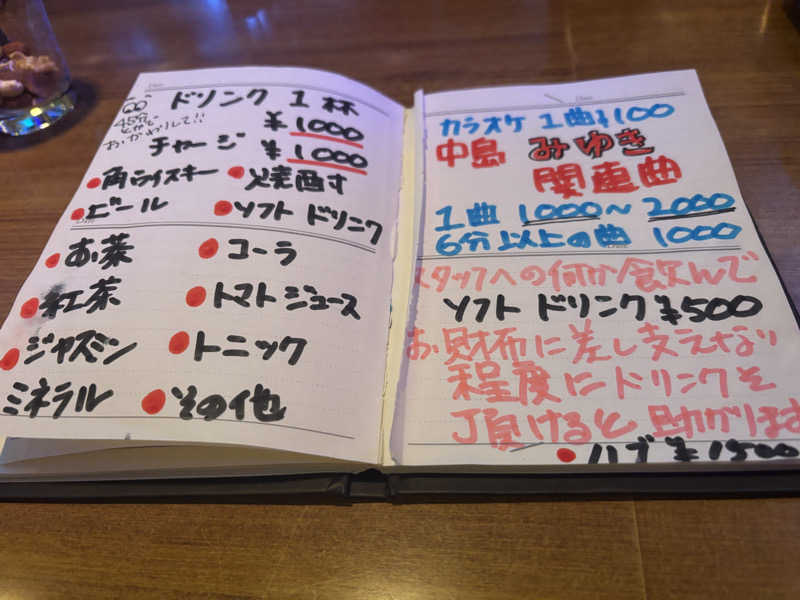 ドリンク 1杯
45分
¥1000
おかわりして!!
チャージ ¥1000
●角ウイスキー ●焼酎
●ビール ●ソフトドリンク
●お茶 ●コーラ
●紅茶 ●トマトジュース
●ジャズミン ●トニック
ミネラル ●その他
カラオケ 1曲¥100
中島 みゆき
関連曲
1曲 1000〜2000
6分以上の曲 1000
スタッフへの何か飲んで
ソフトドリンク ¥500
お財布に差し支えない
程度にドリンクを
頂けると助かります
●ハブ ¥1500